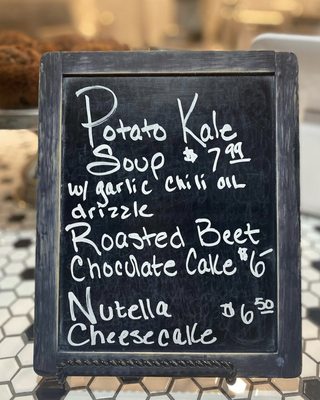 Potato Kale
Soup $7.99
w/ garlic chili oil
drizzle
Roasted Beet
Chocolate Cake $6-
Nutella $6.50
Cheesecake